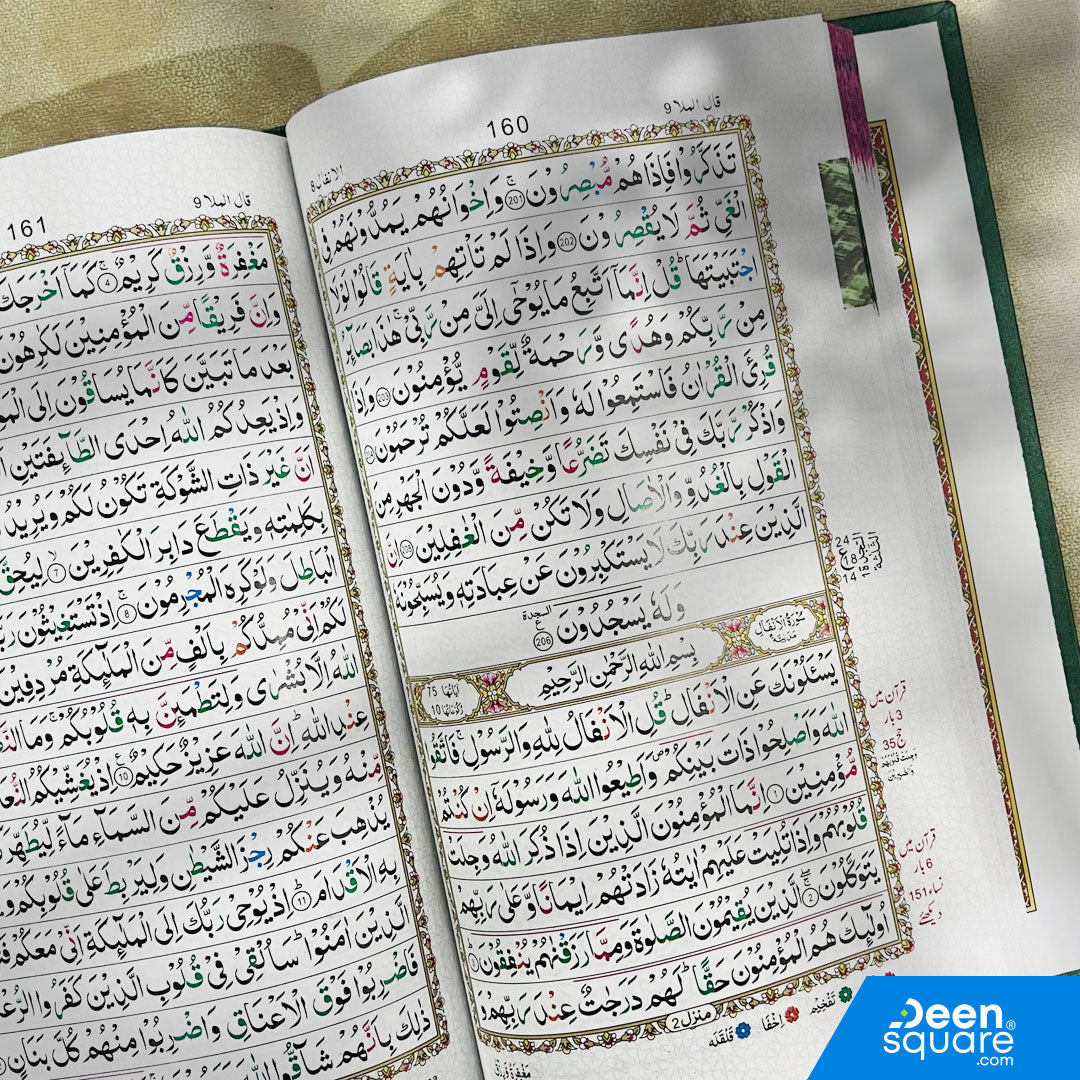 قال الملا ٩
160
الانفال ٨
تَذَكَّرُوْا فَاِذَا هُمْ مُّبْصِرُوْنَ ۚ 201 وَاِخْوَانُهُمْ يَمُدُّوْنَهُمْ فِى
الْغَىِّ ثُمَّ لَا يُقْصِرُوْنَ 202 وَاِذَا لَمْ تَاْتِهِمْ بِاٰيَةٍ قَالُوْا لَوْلَا
اجْتَبَيْتَهَا ؕ قُلْ اِنَّمَاۤ اَتَّبِعُ مَا يُوْحٰٓى اِلَىَّ مِنْ رَّبِّىْ ۚ هٰذَا بَصَآئِرُ
مِنْ رَّبِّكُمْ وَهُدًى وَّرَحْمَةٌ لِّقَوْمٍ يُّؤْمِنُوْنَ 203 وَاِذَا
قُرِئَ الْقُرْاٰنُ فَاسْتَمِعُوْا لَهٗ وَاَنْصِتُوْا لَعَلَّكُمْ تُرْحَمُوْنَ
وَاذْكُرْ رَّبَّكَ فِىْ نَفْسِكَ تَضَرُّعًا وَّخِيْفَةً وَّدُوْنَ الْجَهْرِ مِنَ
الْقَوْلِ بِالْغُدُوِّ وَالْاٰصَالِ وَلَا تَكُنْ مِّنَ الْغٰفِلِيْنَ 205 اِنَّ
الَّذِيْنَ عِنْدَ رَبِّكَ لَا يَسْتَكْبِرُوْنَ عَنْ عِبَادَتِهٖ وَيُسَبِّحُوْنَهٗ
وَلَهٗ يَسْجُدُوْنَ ۩ 206 السجدة
سُوْرَةُ الْاَنْفَالِ مَدَنِيَّةٌ
بِسْمِ اللّٰهِ الرَّحْمٰنِ الرَّحِيْمِ
اٰيَاتُهَا 75 رُكُوْعَاتُهَا 10
يَسْئَلُوْنَكَ عَنِ الْاَنْفَالِ ؕ قُلِ الْاَنْفَالُ لِلّٰهِ وَالرَّسُوْلِ ۚ فَاتَّقُوا
اللّٰهَ وَاَصْلِحُوْا ذَاتَ بَيْنِكُمْ ۖ وَاَطِيْعُوا اللّٰهَ وَرَسُوْلَهٗۤ اِنْ كُنْتُمْ
مُّؤْمِنِيْنَ 1 اِنَّمَا الْمُؤْمِنُوْنَ الَّذِيْنَ اِذَا ذُكِرَ اللّٰهُ وَجِلَتْ
قُلُوْبُهُمْ وَاِذَا تُلِيَتْ عَلَيْهِمْ اٰيٰتُهٗ زَادَتْهُمْ اِيْمَانًا وَّعَلٰى رَبِّهِمْ
يَتَوَكَّلُوْنَ 2 الَّذِيْنَ يُقِيْمُوْنَ الصَّلٰوةَ وَمِمَّا رَزَقْنٰهُمْ يُنْفِقُوْنَ
اُولٰٓئِكَ هُمُ الْمُؤْمِنُوْنَ حَقًّا ؕ لَهُمْ دَرَجٰتٌ عِنْدَ رَبِّهِمْ وَ
منزل 2
تفخیم اخفا قلقله
24
14
18
قرآن میں
3 بار
حج 35
قرآن میں
6 بار
نساء 151
دیکھئے
قال الملا ٩
161
مَغْفِرَةٌ وَّرِزْقٌ كَرِيْمٌ 4 كَمَاۤ اَخْرَجَكَ
وَاِنَّ فَرِيْقًا مِّنَ الْمُؤْمِنِيْنَ لَكٰرِهُوْنَ
بَعْدَ مَا تَبَيَّنَ كَاَنَّمَا يُسَاقُوْنَ اِلَى
وَاِذْ يَعِدُكُمُ اللّٰهُ اِحْدَى الطَّآئِفَتَيْنِ
اَنَّ غَيْرَ ذَاتِ الشَّوْكَةِ تَكُوْنُ لَكُمْ وَيُرِيْدُ
بِكَلِمٰتِهٖ وَيَقْطَعَ دَابِرَ الْكٰفِرِيْنَ 7 لِيُحِقَّ
الْبَاطِلَ وَلَوْ كَرِهَ الْمُجْرِمُوْنَ 8 اِذْ تَسْتَغِيْثُوْنَ
لَكُمْ اَنِّىْ مُمِدُّكُمْ بِاَلْفٍ مِّنَ الْمَلٰٓئِكَةِ مُرْدِفِيْنَ
اللّٰهُ اِلَّا بُشْرٰى وَلِتَطْمَئِنَّ بِهٖ قُلُوْبُكُمْ ۚ وَمَا
عِنْدِ اللّٰهِ ؕ اِنَّ اللّٰهَ عَزِيْزٌ حَكِيْمٌ 10 اِذْ يُغَشِّيْكُمُ
مِّنْهُ وَيُنَزِّلُ عَلَيْكُمْ مِّنَ السَّمَآءِ مَآءً لِّيُطَهِّرَ
يُذْهِبَ عَنْكُمْ رِجْزَ الشَّيْطٰنِ وَلِيَرْبِطَ عَلٰى قُلُوْبِكُمْ
بِهِ الْاَقْدَامَ 11 اِذْ يُوْحِىْ رَبُّكَ اِلَى الْمَلٰٓئِكَةِ اَنِّىْ مَعَكُمْ
الَّذِيْنَ اٰمَنُوْا ؕ سَاُلْقِىْ فِىْ قُلُوْبِ الَّذِيْنَ كَفَرُوا
فَاضْرِبُوْا فَوْقَ الْاَعْنَاقِ وَاضْرِبُوْا مِنْهُمْ كُلَّ بَنَانٍ
ذٰلِكَ بِاَنَّهُمْ شَآقُّوا
Deen
square®
.com